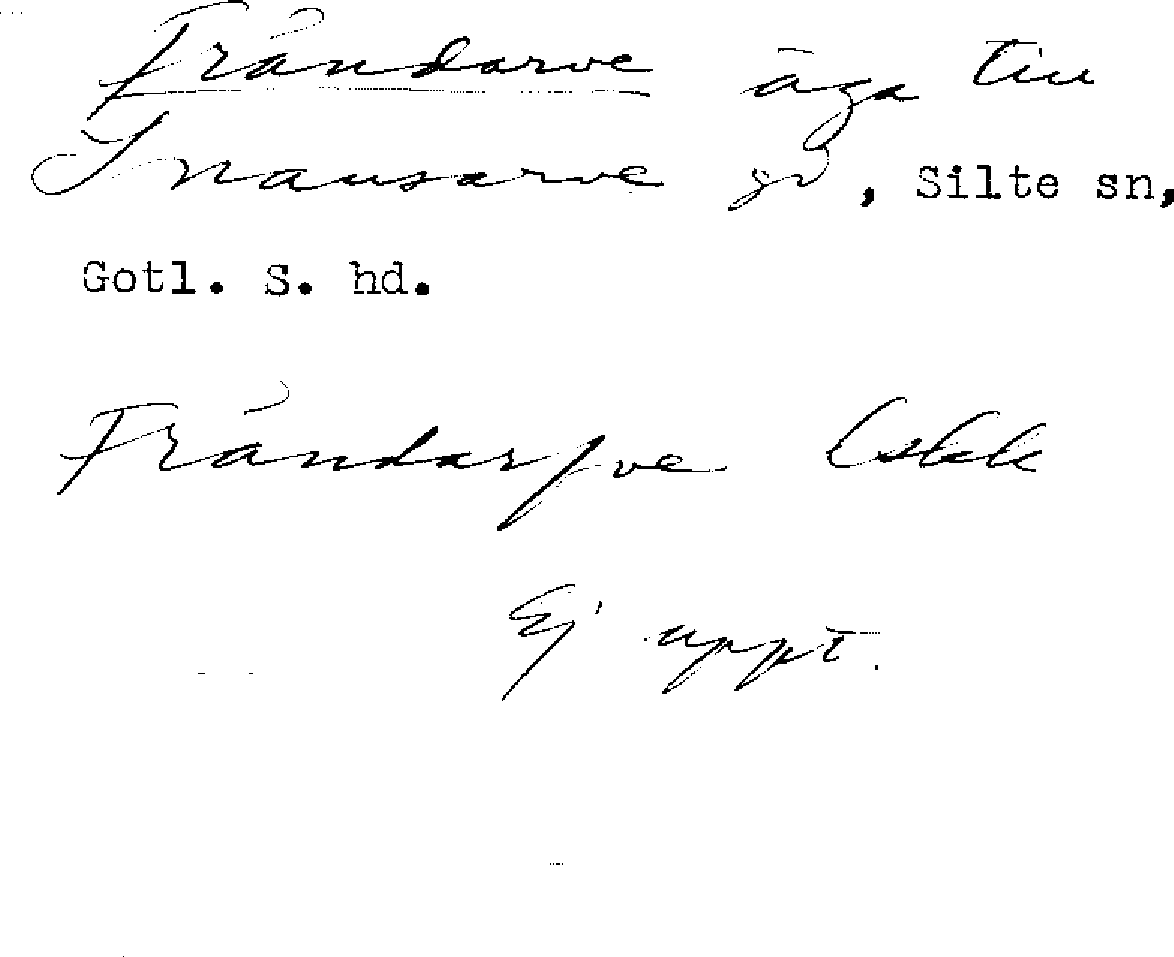 Fråndarve äga till
Snausarve gd, Silte sn,
Gotl. S. hd.
Fråndarfve Eskk
Ej uppt.